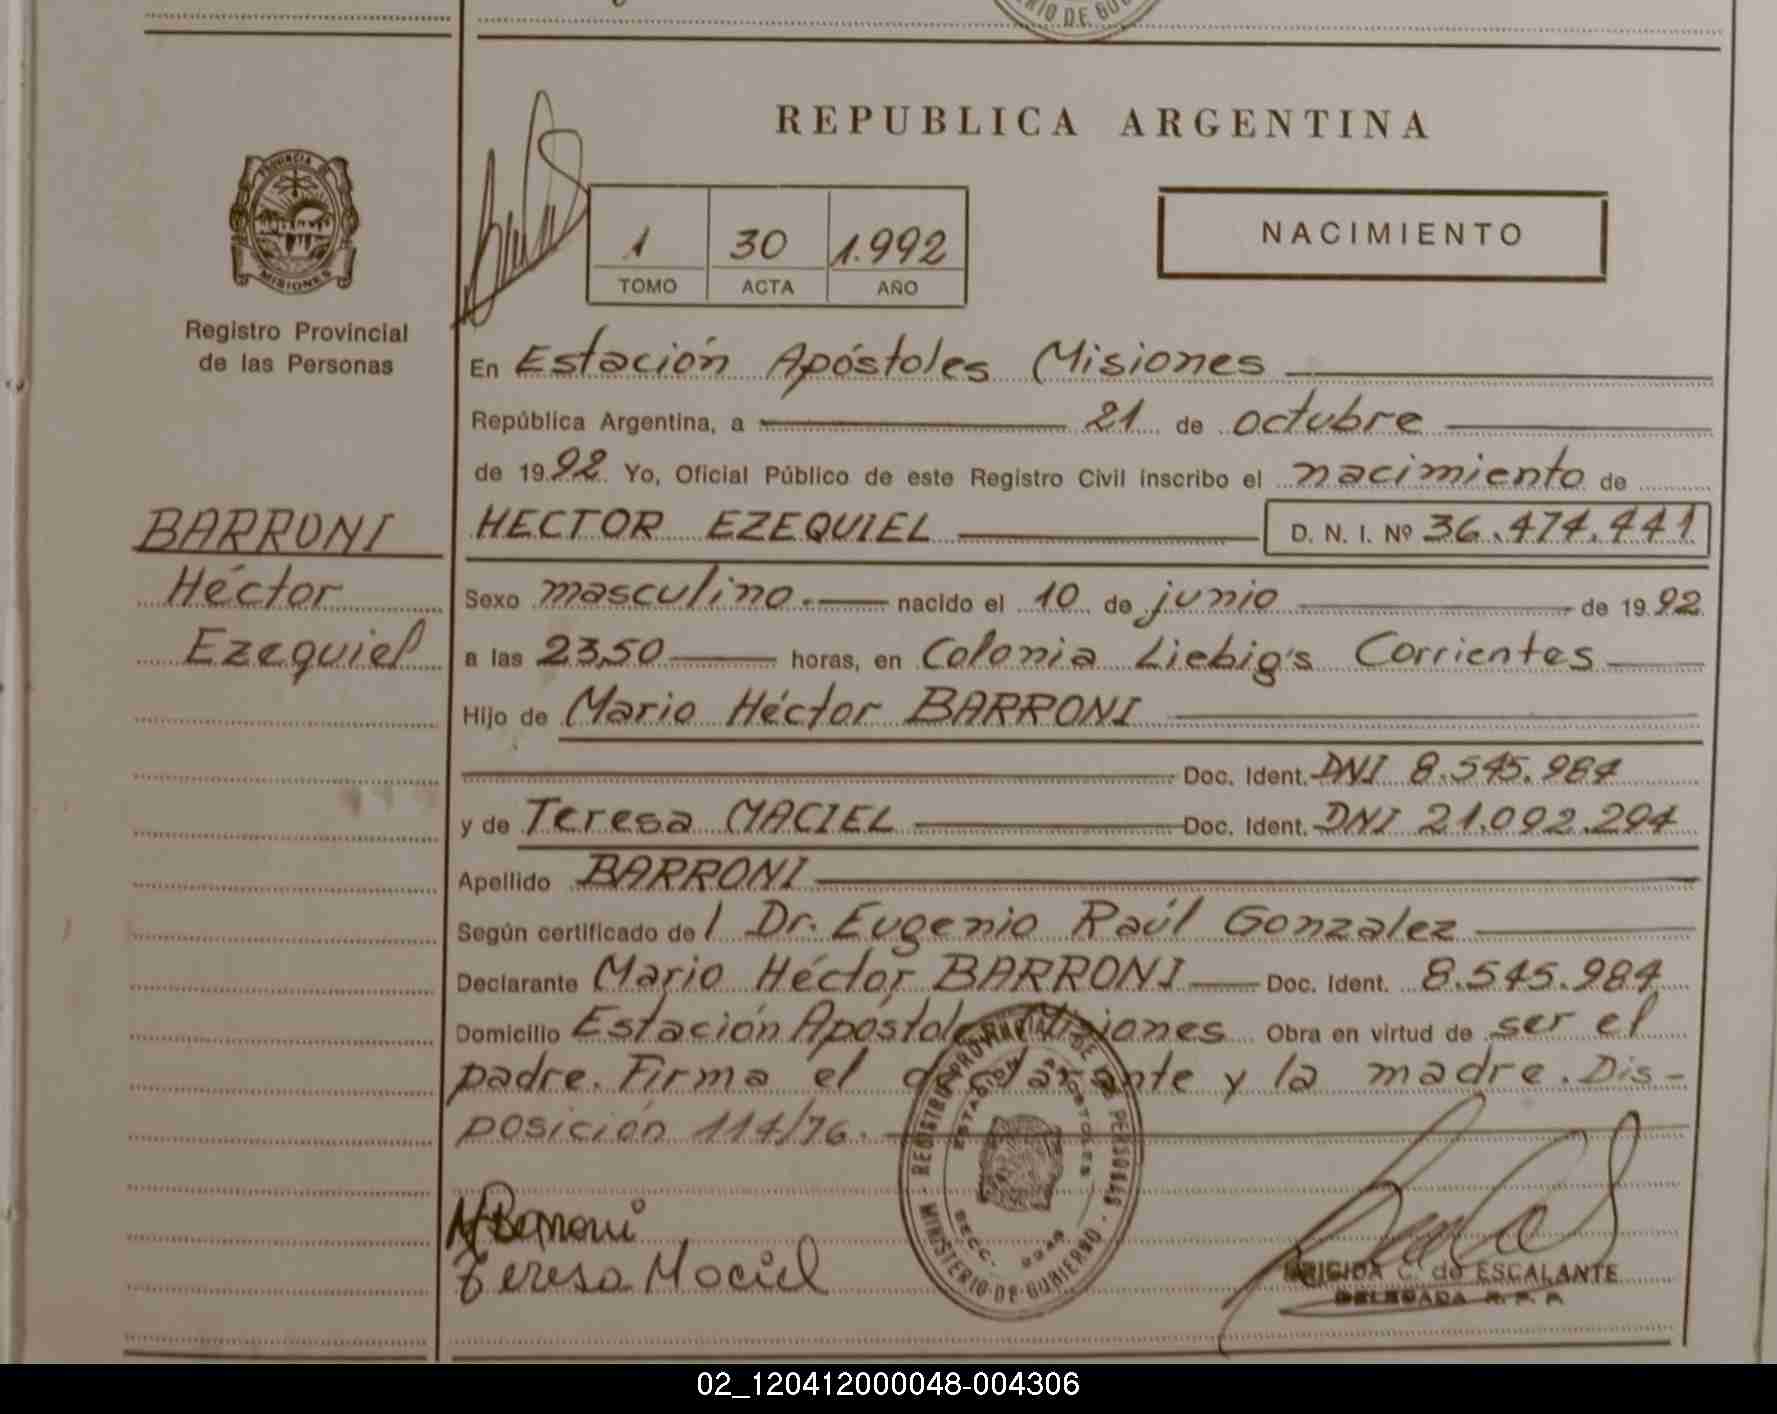 RIO DE GOB
REPUBLICA ARGENTINA
PROVINCIA
MISIONES
Registro Provincial
de las Personas
1 30 1.992
TOMO ACTA AÑO
NACIMIENTO
En Estación Apóstoles Misiones
República Argentina, a 21 de octubre
de 1992 Yo, Oficial Público de este Registro Civil inscribo el nacimiento de
BARRONI
Héctor
Ezequiel
HECTOR EZEQUIEL D. N. I. Nº 36.474.441
Sexo masculino.- nacido el 10 de junio de 1992
a las 23,50 horas, en Colonia Liebig's Corrientes
Hijo de Mario Héctor BARRONI
Doc. Ident. DNI 8.545.984
y de Teresa MACIEL Doc. Ident. DNI 21.092.294
Apellido BARRONI
Según certificado de l Dr. Eugenio Raúl Gonzalez
Declarante Mario Héctor BARRONI Doc. Ident. 8.545.984
Domicilio Estación Apóstoles Misiones Obra en virtud de ser el
padre. Firma el declarante y la madre. Dis-
posición 114/76.
REGISTRO PROVINCIAL DE LAS PERSONAS
ESTACION APOSTOLES
SECC.
MINISTERIO DE GOBIERNO
Barroni
Teresa Maciel
BRIGIDA C. de ESCALANTE
DELEGADA R. P. P.
02_120412000048-004306